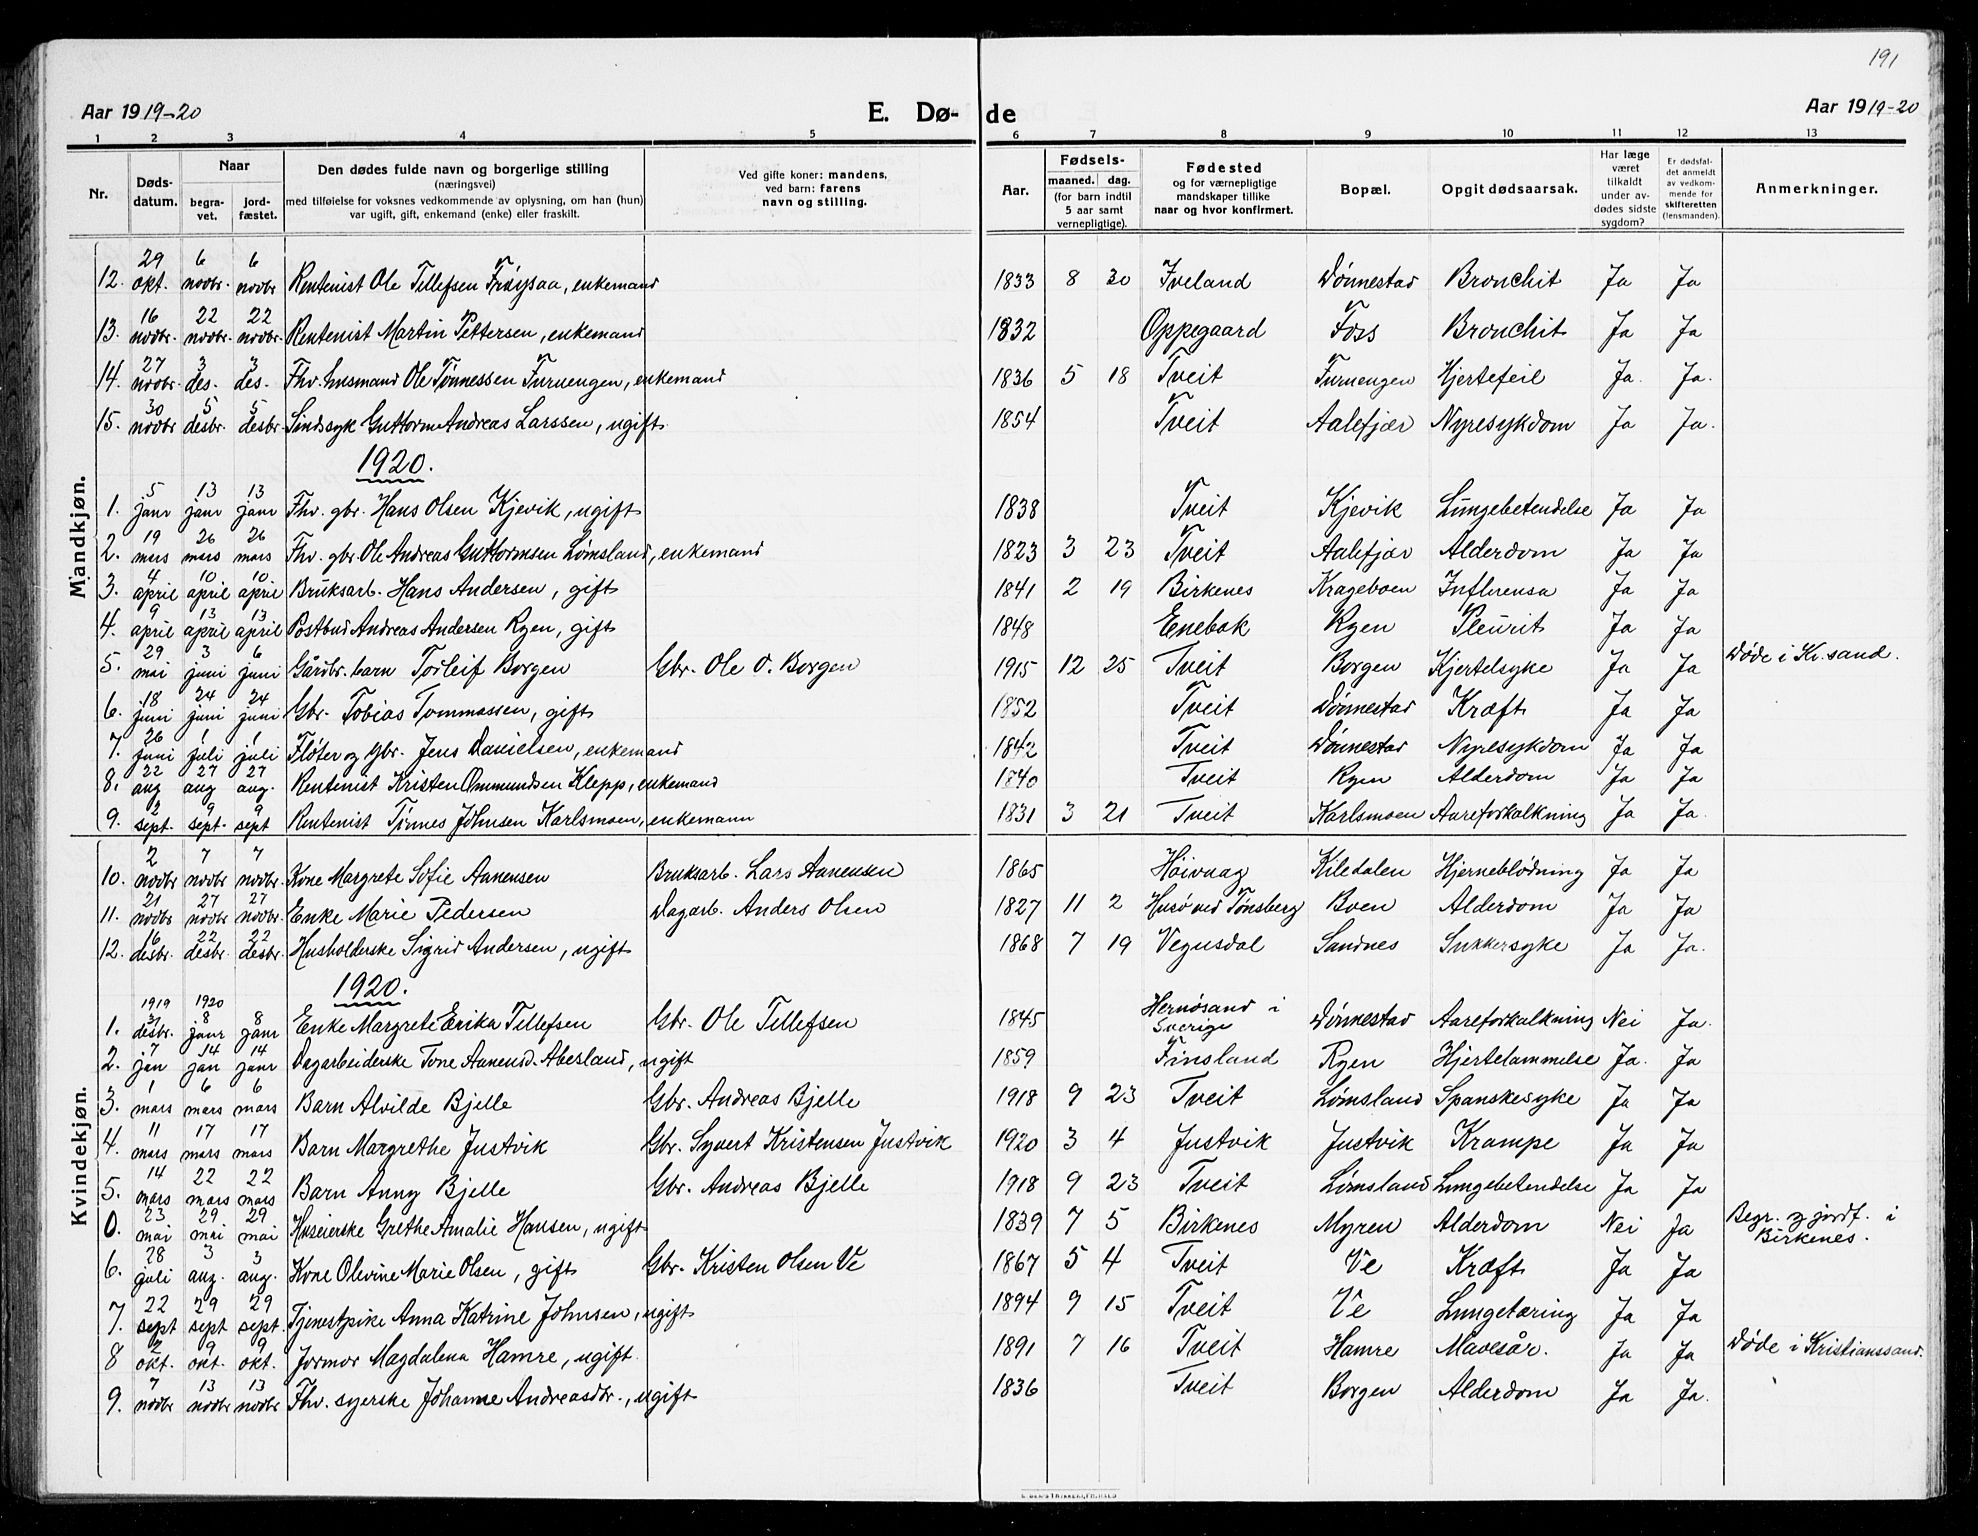 191
Aar 1919-20 E. Dø- de Aar 1919-20
1 2 3 4 5 6 7 8 9 10 11 12 13
Nr. Døds-datum. Naar begra-vet. jord-fæstet. Den dødes fulde navn og borgerlige stilling (næringsvei) med tilføielse for voksnes vedkommende av oplysning, om han (hun) var ugift, gift, enkemand (enke) eller fraskilt. Ved gifte koner: mandens, ved barn: farens navn og stilling. Aar. Fødsels- maaned. dag. (for barn indtil 5 aar samt vernepligtige). Fødested og for værnepligtige mandskaper tillike naar og hvor konfirmert. Bopæl. Opgit dødsaarsak. Har læge været tilkaldt under av-dødes sidste sygdom? Er dødsfal-det anmeldt av vedkom-mende for skifteretten (lensmanden). Anmerkninger.
Mandkjøn.
12. 29 okt. 6 novbr. 6 novbr Rentenist Ole Tellefsen Frøysaa, enkemand 1833 8 30 Iveland Dønnestad Bronchit Ja Ja
13. 16 novbr. 22 novbr. 22 novbr. Rentenist Martin Pettersen, enkemand 1832 Oppegaard Foss Bronchit Ja Ja
14. 27 novbr. 3 des. 3 des. Fhv. husmand Ole Tønnessen Furuengen, enkemand 1836 5 18 Tveit Furuengen Hjertefeil Ja. Ja.
15. 30 novbr 5 desbr. 5 desbr. Sindssyk Guttorm Andreas Larssen, ugift 1854 Tveit Aalefjær Nyresykdom Ja Ja.
1920.
1. 5 janr 13 janr 13 janr Fhv. gbr. Hans Olsen Kjevik, ugift 1838 Tveit Kjevik Lungebetendelse Ja Ja
2. 19 mars 26 mars 26 mars Fhv. gbr. Ole Andreas Guttormsen Lømsland, enkemand 1823 3 23 Tveit Aalefjær Alderdom Ja Ja
3. 4 april 10 april 10 april Bruksarb. Hans Andersen, gift 1841 2 19 Birkenes Krageboen Influensa Ja Ja
4. 9 april 13 april 13 april Postbud Andreas Andersen Ryen, gift 1848 Enebak Ryen Pleurit Ja Ja
5. 29 mai 3 juni 6 juni Gårdbr. barn Torleif Borgen Gbr. Ole O. Borgen 1915 12 25 Tveit Borgen Kjertelsyke Ja Ja Døde i Kr.sand.
6. 18 juni 24 juni 24 juni Gbr. Tobias Tommassen, gift 1852 Tveit Dønnestad Kræft Ja Ja
7. 26 juni 1 juli 1 juli Fløter og Gbr. Jens Danielsen, enkemand 1842 Tveit Dønnestad Nyresykdom Ja Ja
8. 22 aug 27 aug 27 aug. Rentenist Kristen Ommundsen Klepp, enkemand 1840 Tveit Ryen Alderdom Ja Ja
9. 2 sept. 9 sept. 9 sept Rentenist Tønnes Johnsen Karlsmoen, enkemann 1831 3 21 Tveit Karlsmoen Aareforkalkning Ja Ja.
Kvindekjøn.
10. 2 novbr 7 novbr 7 novbr. Kone Margrete Sofie Aanensen Bruksarb. Lars Aanensen 1865 Høivaag Kiledalen Hjerneblødning Ja Ja
11. 21 novbr 27 novbr 27 novbr. Enke Marie Pedersen Dagarb. Anders Olsen 1827 11 2 Husø ved Tønsberg Boen Alderdom Ja Ja
12. 16 desbr. 22 desbr. 22 desbr. Husholderske Sigrid Andersen, ugift 1868 7 19 Vegusdal Sandnes Sukkersyke Ja Ja.
1920.
1. 1919 31 desbr. 1920 8 janr 8 janr Enke Margrete Erika Tellefsen Gbr. Ole Tellefsen 1845 Hernøsand i Sverige Dønnestad Aareforkalkning Nei Ja.
2. 7 jan 14 jan 14 janr Dagarbeiderske Tone Aanensd. Abesland, ugift 1859 Finsland Ryen Hjertelammelse Ja. Ja
3. 1 mars 6 mars 6 mars Barn Alvilde Bjelle Gbr. Andreas Bjelle 1918 9 23 Tveit Lømsland Spanskesyke Ja Ja
4. 11 mars 17 mars 17 mars Barn Margrethe Justvik Gbr. Syvert Kristensen Justvik 1920 3 4 Justvik Justvik Krampe Ja Ja
5. 14 mars 22 mars 22 mars Barn Anny Bjelle Gbr. Andreas Bjelle 1918 9 23 Tveit Lømsland Lungebetendelse Ja Ja
0. 23 mai 29 mai 29 mai Huseierske Grethe Amalie Hansen, ugift 1839 7 5 Birkenes Myren Alderdom Nei Ja Begr. og jordf. i Birkenes.
6. 28 juli 3 aug. 3 aug. Kone Olevine Marie Olsen, gift Gbr. Kristen Olsen Ve 1867 5 4 Tveit Ve Kræft Ja Ja
7. 22 sept 29 sept 29 sept. Tjenestpike Anna Katrine Johnsen, ugift 1894 9 15 Tveit Ve Lungetæring Ja Ja
8 2 okt. 9 okt. 9 okt. Jormor Magdalena Hamre, ugift. 1891 7 16 Tveit Hamre Mavesår. Ja Ja Døde i Kristianssand.
9. 7 novbr 13 novbr 13 novbr Fhv. syerske Johanne Andreasdtr., ugift 1836 Tveit Borgen Alderdom Ja Ja.